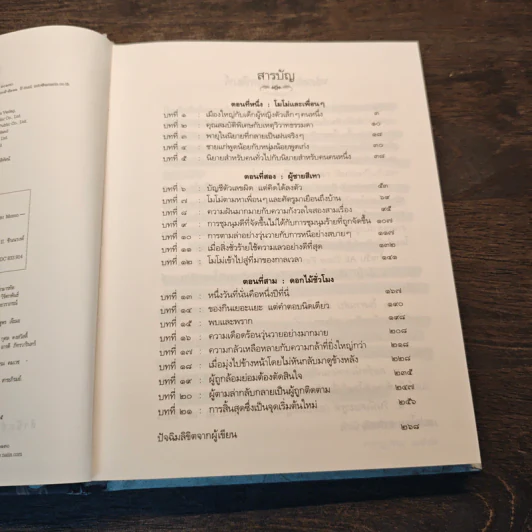 สารบัญ
ตอนที่หนึ่ง : โมโม่และเพื่อนๆ
บทที่ ๑ : เมืองใหญ่กับเด็กผู้หญิงตัวเล็กๆ คนหนึ่ง ๓
บทที่ ๒ : คุณสมบัติพิเศษกับเหตุวิวาทธรรมดา ๑๐
บทที่ ๓ : พายุในนิยายที่กลายเป็นฝนจริงๆ ๑๘
บทที่ ๔ : ชายแก่พูดน้อยกับหนุ่มน้อยพูดเก่ง ๓๐
บทที่ ๕ : นิยายสำหรับคนทั่วไปกับนิยายสำหรับคนคนหนึ่ง ๓๘
ตอนที่สอง : ผู้ชายสีเทา
บทที่ ๖ : บัญชีตัวเลขผิด แต่คิดได้ลงตัว ๕๓
บทที่ ๗ : โมโม่ตามหาเพื่อนๆ และศัตรูมาเยือนถึงบ้าน ๖๙
บทที่ ๘ : ความฝันมากมายกับความกังวลใจสองสามเรื่อง ๙๕
บทที่ ๙ : การชุมนุมดีที่จัดขึ้นไม่ได้กับการชุมนุมร้ายที่ถูกจัดขึ้น ๑๐๗
บทที่ ๑๐ : การตามล่าอย่างวุ่นวายกับการหนีอย่างสบายๆ ๑๑๗
บทที่ ๑๑ : เมื่อสิ่งชั่วร้ายใช้ความเลวอย่างดีที่สุด ๑๓๒
บทที่ ๑๒ : โมโม่เข้าไปสู่ที่มาของกาลเวลา ๑๔๑
ตอนที่สาม : ดอกไม้ชั่วโมง
บทที่ ๑๓ : หนึ่งวันที่นั่นคือหนึ่งปีที่นี่ ๑๖๗
บทที่ ๑๔ : ของกินเยอะแยะ แต่คำตอบนิดเดียว ๑๙๐
บทที่ ๑๕ : พบและพราก ๑๙๘
บทที่ ๑๖ : ความเดือดร้อนวุ่นวายอย่างมากมาย ๒๐๘
บทที่ ๑๗ : ความกลัวเหลือหลายกับความกล้าที่ยิ่งใหญ่กว่า ๒๑๘
บทที่ ๑๘ : เมื่อมุ่งไปข้างหน้าโดยไม่หันกลับมาดูข้างหลัง ๒๒๘
บทที่ ๑๙ : ผู้ถูกล้อมย่อมต้องตัดสินใจ ๒๓๕
บทที่ ๒๐ : ผู้ตามล่ากลับกลายเป็นผู้ถูกติดตาม ๒๔๗
บทที่ ๒๑ : การสิ้นสุดซึ่งเป็นจุดเริ่มต้นใหม่ ๒๕๖
ปัจฉิมลิขิตจากผู้เขียน ๒๖๘